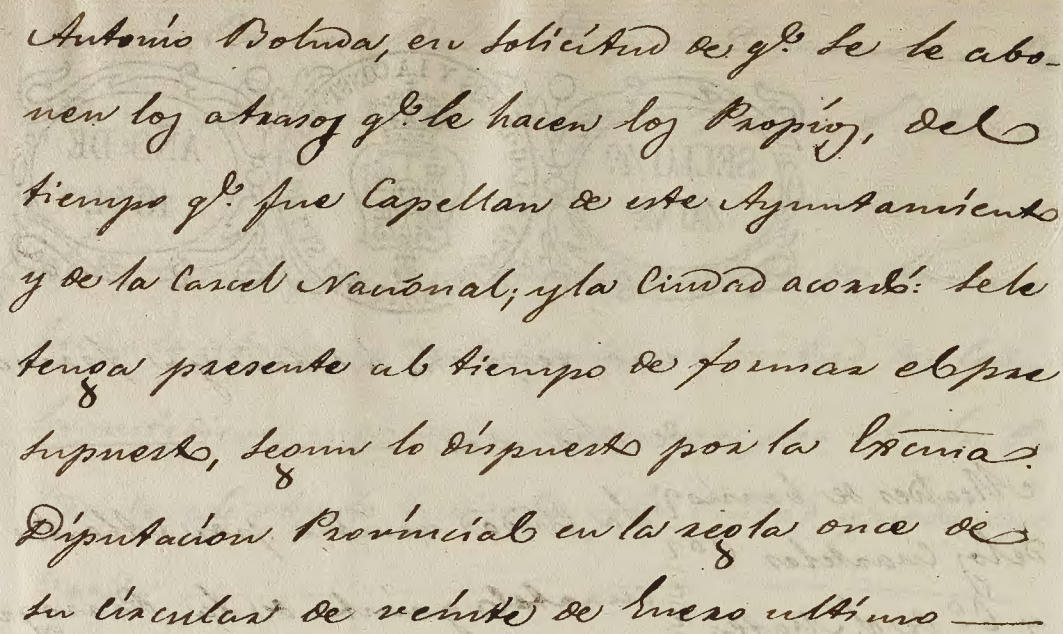 Antonio Boluda, en solicitud de q.e se le abo-
nen los atrasos q.e le hacen los Propios, del
tiempo q.e fue Capellan de este Ayuntamiento
y de la Carcel Nacional; y la Ciudad acordó: se le
tenga presente al tiempo de formar el pre
supuesto, segun lo dispuesto por la Excma.
Diputacion Provincial en la regla once de
su circular de veinte de Enero ultimo